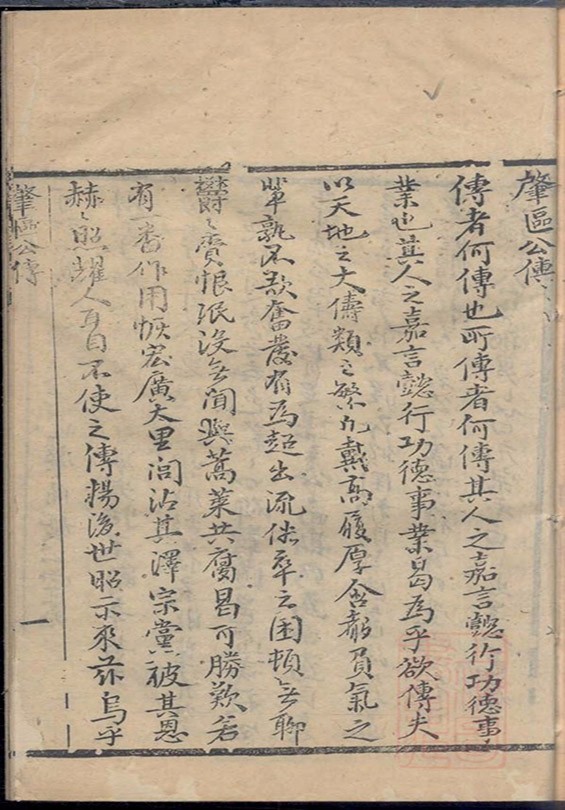 肇區公傳
傳者何傳也所傳者何傳其人之嘉言懿行功德事
業也其人之嘉言懿行功德事業曷為乎欲傳夫
以天地之大儔類之繁凡戴高履厚含齒負氣之
輩孰不欲奮發有為超出流俗卒之困頓無聊
鬱〻賫恨泯沒無聞與蒿萊共腐曷可勝歎若
有一番作用恢宏廣大里閭沾其澤宗黨被其恩
赫〻照耀人耳目不使之傳揚後世昭示來茲烏乎
肇區公傳
一